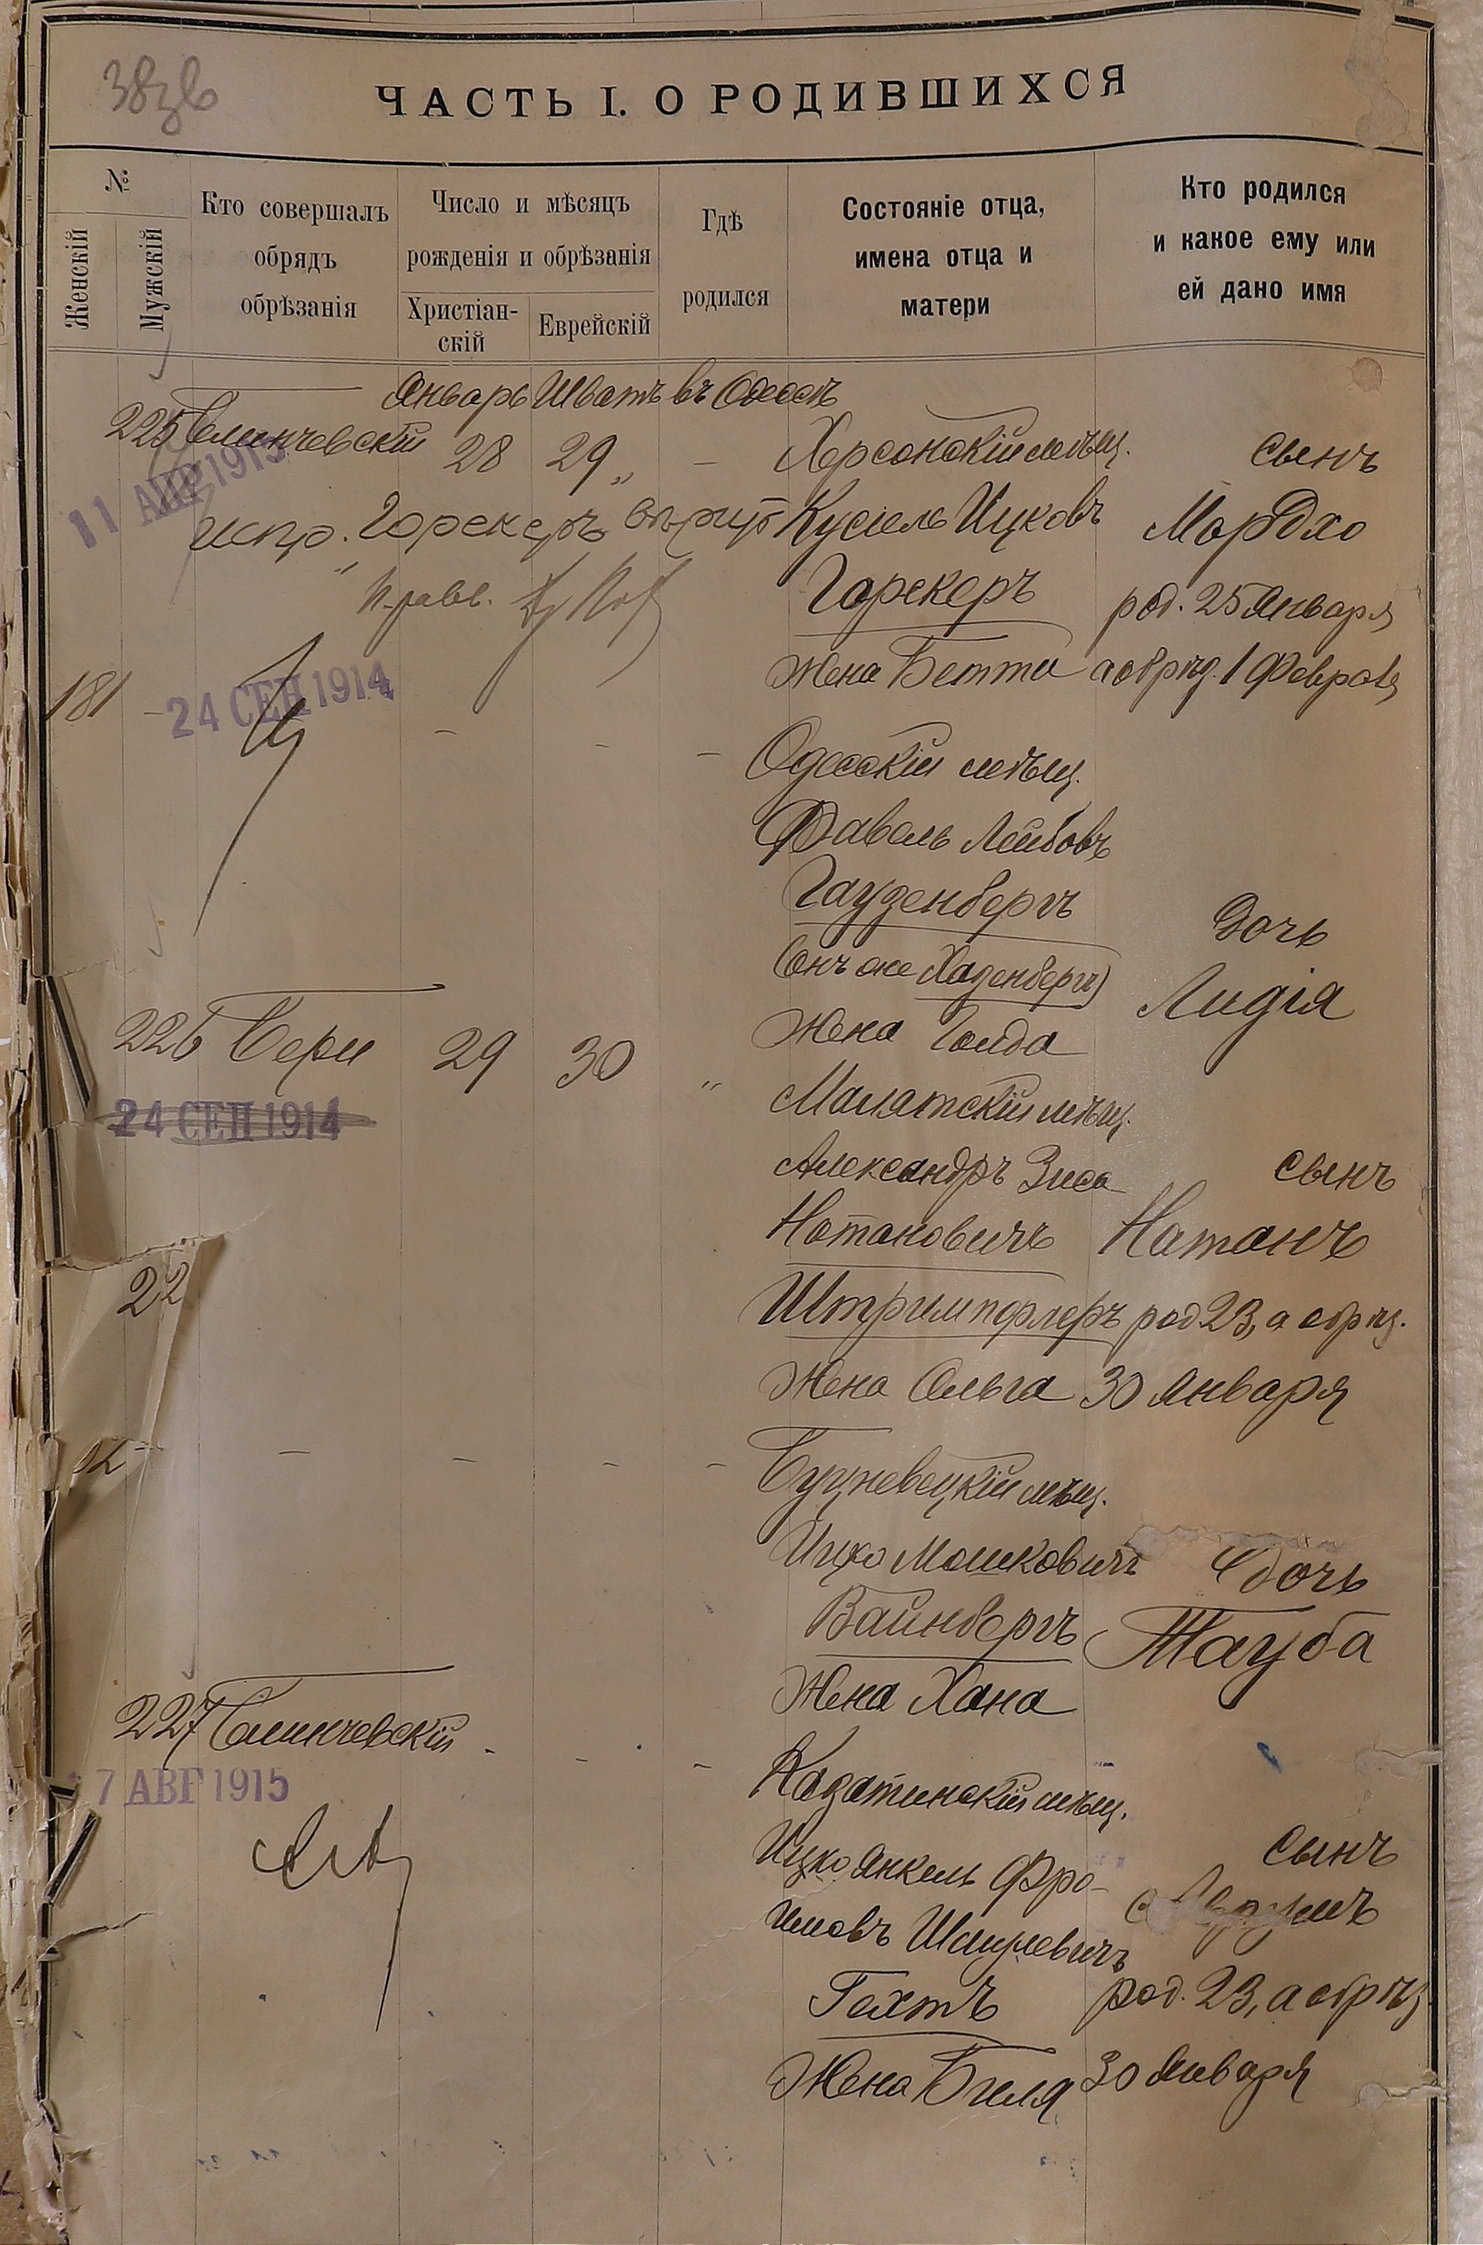 ЧАСТЬ I. О РОДИВШИХСЯ
№
Женскій
Мужскій
Кто совершалъ
обрядъ
обрѣзанія
Число и мѣсяцъ
рожденія и обрѣзанія
Христіан-
скій
Еврейскій
Гдѣ
родился
Состояніе отца,
имена отца и
матери
Кто родился
и какое ему или
ей дано имя
Январь Шватъ въ Одессѣ
225 28 29 „ – Херсонскій мѣщ. сынъ
11 АПР 1915
испр. „Горекеръ Кусиель Ицковъ Мордхо
Горекеръ род. 25 Января
Жена Бетти а обрѣз. 1 Февраля
181 – 24 СЕН 1914 – – – Одесскій мѣщ.
Фавель Лейбовъ
Гаузенбергъ дочь
(онъ же Хазенбергъ) Лидія
Жена Голда
226 Бери 29 30 „
Малятскій мѣщ.
24 СЕН 1914
Александръ Зиса сынъ
Натановичъ Натанъ
Штримпфлеръ род 23, а обрѣз.
Жена Ольга 30 Января
22
– – – – мѣщ.
Ицко Мошковичъ дочь
Вайнбергъ Тауба
Жена Хана
227 - - - –
7 АВГ 1915
Казатинскій мѣщ.
Ицко Янкель Фро- сынъ
имовъ Шмулевичъ
Гехтъ род. 23, а обрѣз
Жена Бейля 30 Января